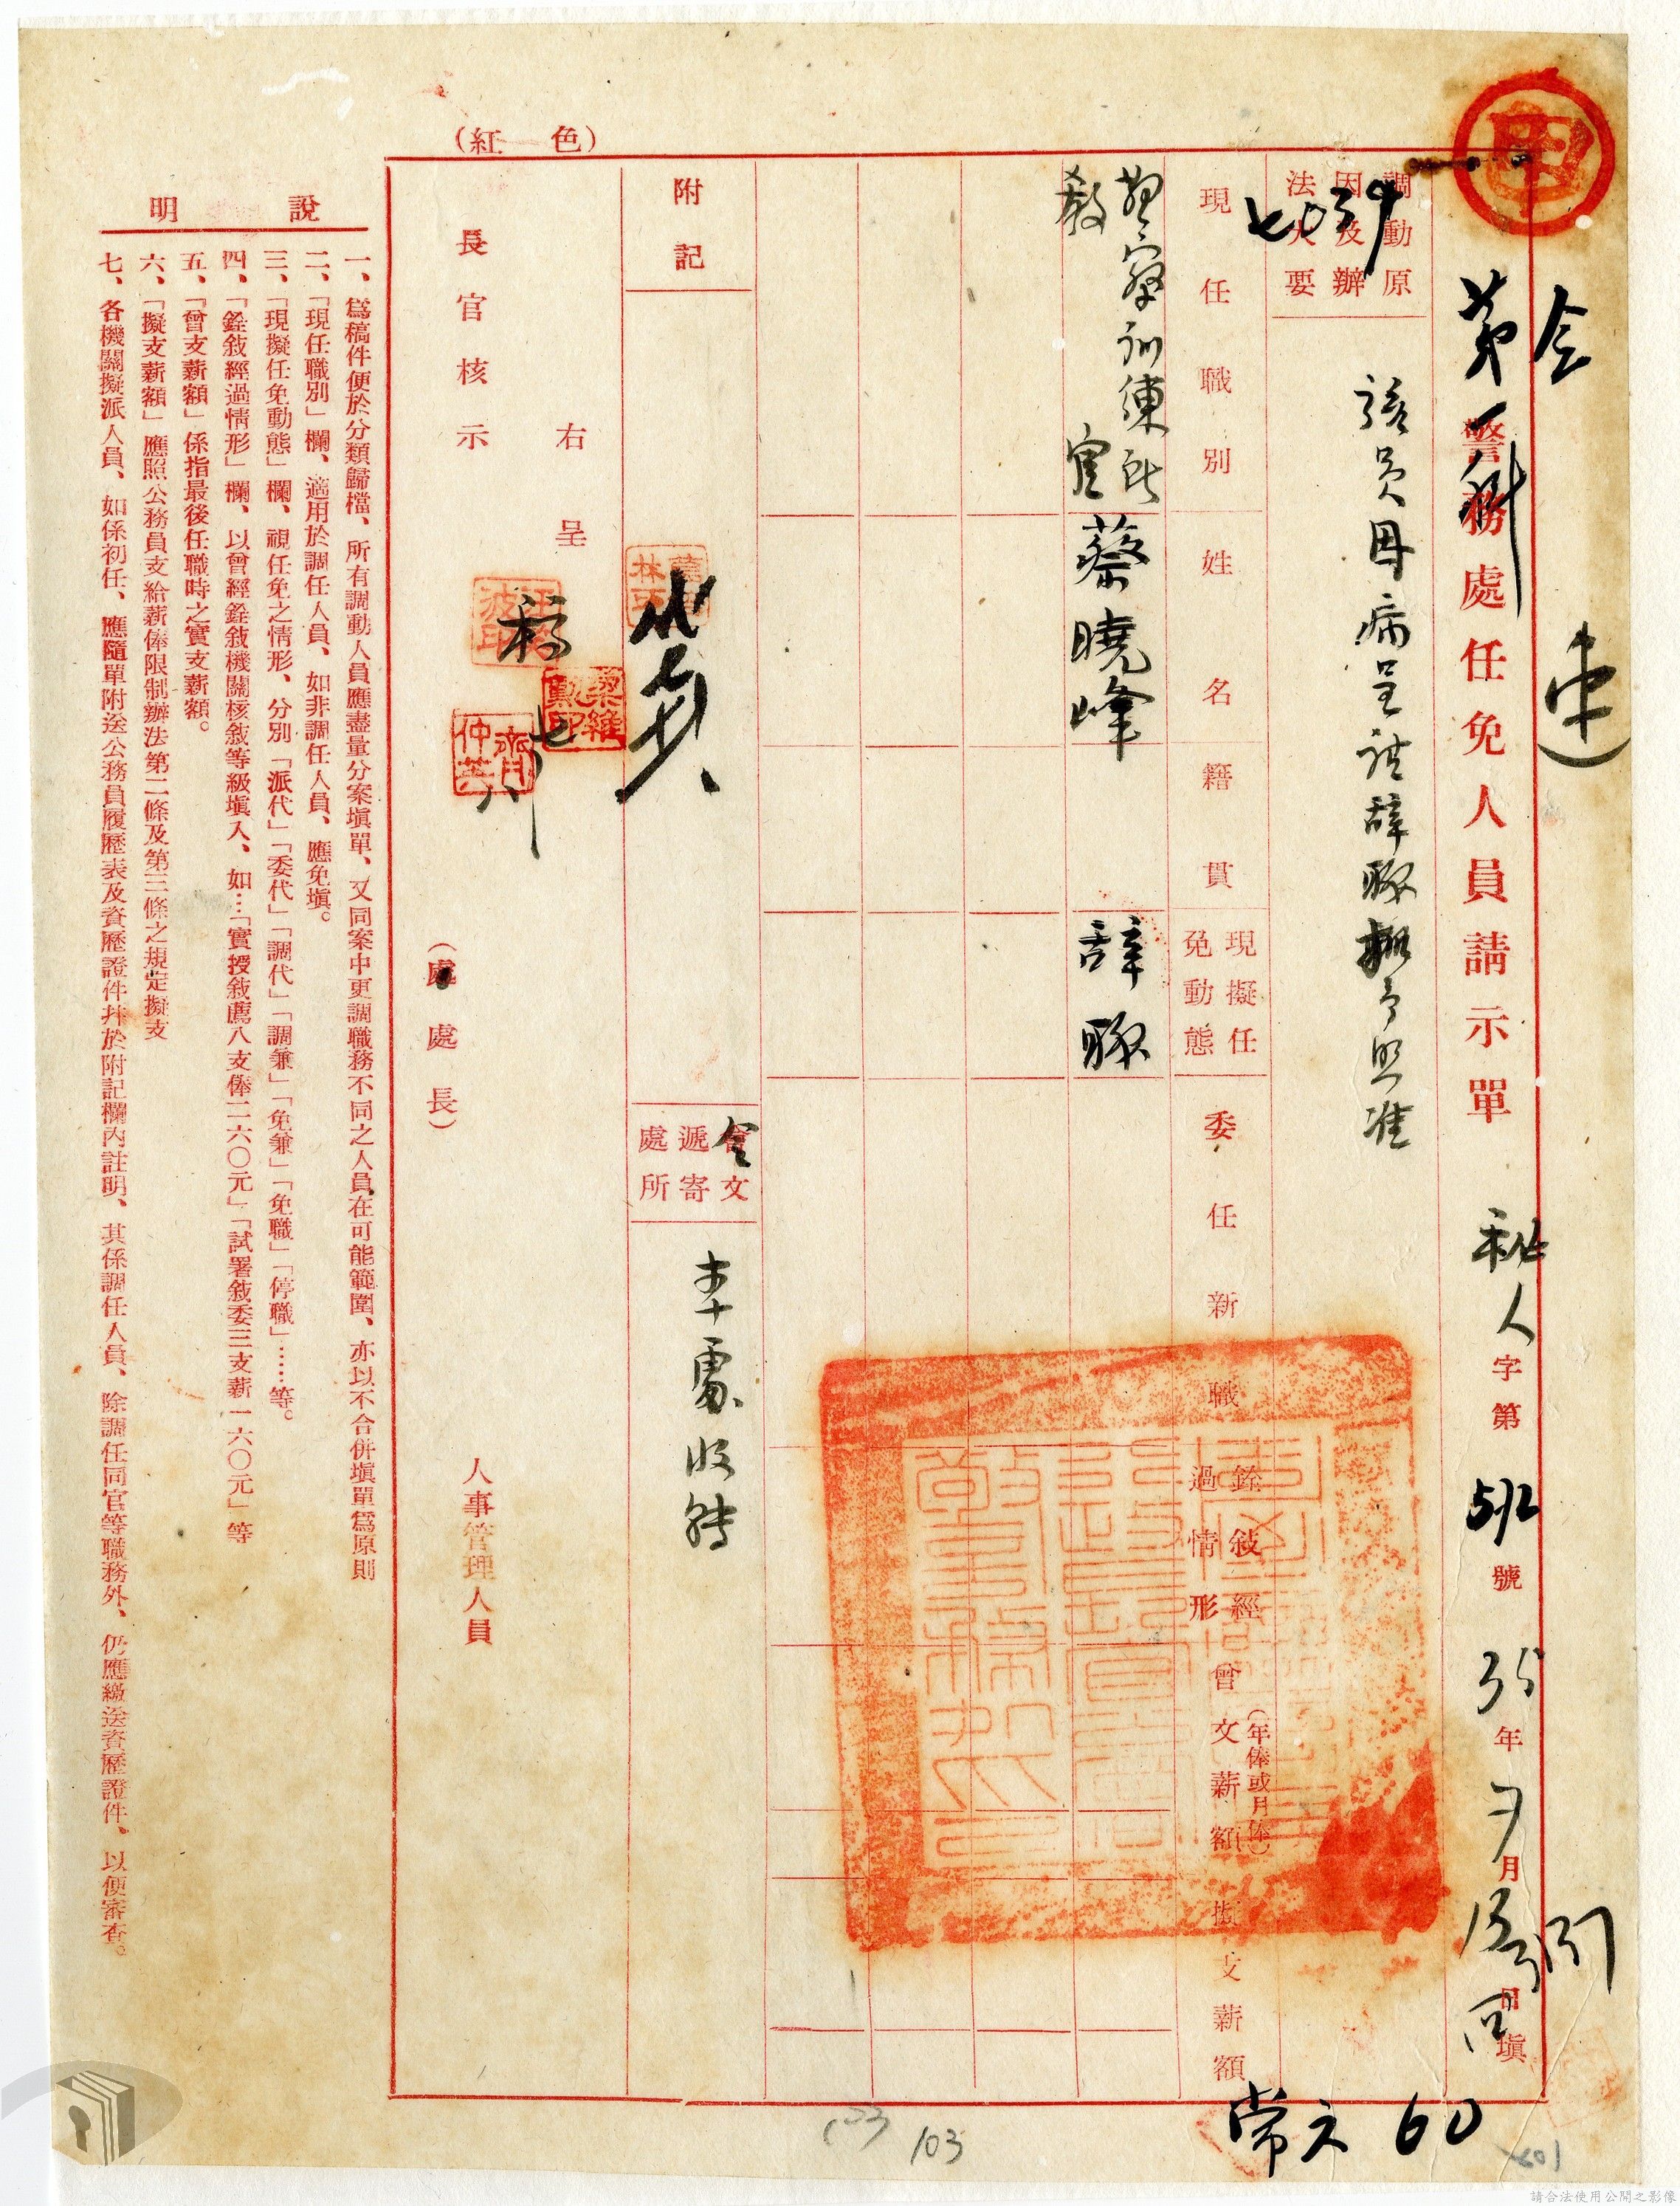 (紅色)
警務處任免人員請示單
秘人字第 號 35年 月 日填
第一科
調動原因及辦法大要
該員因病呈請辭職擬予照准
現任職別
姓名
籍貫
現擬任免動態
委任新職
銓敍經過情形
曾文薪額(年俸或月俸)
擬支薪額
警察訓練所
教官
蔡曉峰
辭職
附記
令文遞寄處所
本處收轉
右呈
(處處長)
長官核示
人事管理人員
說明
一、爲稿件便於分類歸檔、所有調動人員應盡量分案塡單、又同案中更調職務不同之人員在可能範圍、亦以不合併塡單爲原則
二、「現任職別」欄、適用於調任人員、如非調任人員、應免塡。
三、「現擬任免動態」欄、視任免之情形、分別「派代」「委代」「調代」「調兼」「免兼」「免職」「停職」……等。
四、「銓敍經過情形」欄、以曾經銓敍機關核敍等級塡入、如…「實授敍薦八支俸二六〇元」「試署敍委三支薪一六〇元」等
五、「曾支薪額」係指最後任職時之實支薪額。
六、「擬支薪額」應照公務員支給薪俸限制辦法第二條及第三條之規定擬支
七、各機關擬派人員、如係初任、應隨單附送公務員履歷表及資歷證件并於附記欄內註明、其係調任人員、除調任同官等職務外、仍應繳送資歷證件、以便審查。
103
請合法使用公開之影像